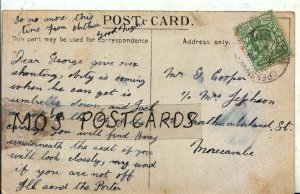 so no more this
time from Mother
good night
POST CARD.
This part may be used for Correspondence
Address only.
Dear George give over
shouting, Cosby is coming
when he can get is
umbrella down, and Jack
MO'S POSTCARDS
you will find Harry
underneath the seat if you
will look closely, my word
if you are not off
Ill send the Porter
Mr G Cooper
c/o Mrs Jephson
Northumberland St.
Morecambe